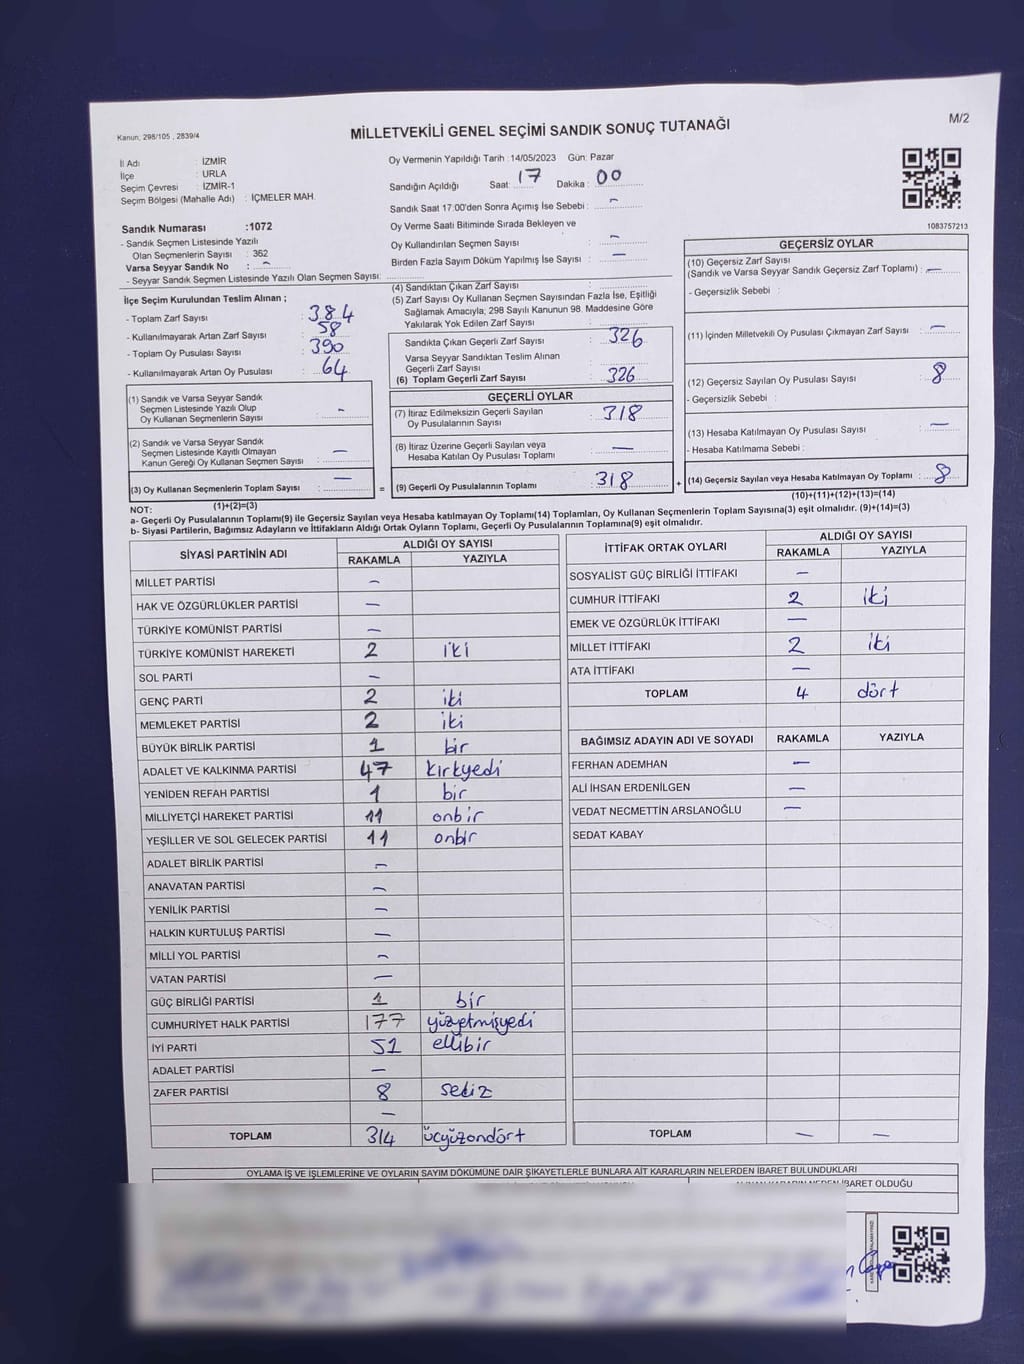 Kanun; 298/105 , 2839/4
MİLLETVEKİLİ GENEL SEÇİMİ SANDIK SONUÇ TUTANAĞI
M/2
İl Adı : İZMİR
İlçe : URLA
Seçim Çevresi : İZMİR-1
Seçim Bölgesi (Mahalle Adı) : İÇMELER MAH.
Oy Vermenin Yapıldığı Tarih : 14/05/2023 Gün: Pazar
Sandığın Açıldığı Saat: 17 Dakika : 00
Sandık Saat 17:00'den Sonra Açımış İse Sebebi : -
Oy Verme Saati Bitiminde Sırada Bekleyen ve
Oy Kullandırılan Seçmen Sayısı : -
Birden Fazla Sayım Döküm Yapılmış İse Sayısı : -
1083757213
Sandık Numarası :1072
- Sandık Seçmen Listesinde Yazılı
Olan Seçmenlerin Sayısı : 362
Varsa Seyyar Sandık No : -
- Seyyar Sandık Seçmen Listesinde Yazılı Olan Seçmen Sayısı:
İlçe Seçim Kurulundan Teslim Alınan ;
- Toplam Zarf Sayısı : 384
- Kullanılmayarak Artan Zarf Sayısı : 58
- Toplam Oy Pusulası Sayısı : 390
- Kullanılmayarak Artan Oy Pusulası : 64
(1) Sandık ve Varsa Seyyar Sandık
Seçmen Listesinde Yazılı Olup
Oy Kullanan Seçmenlerin Sayısı : -
(2) Sandık ve Varsa Seyyar Sandık
Seçmen Listesinde Kayıtlı Olmayan
Kanun Gereği Oy Kullanan Seçmen Sayısı : -
(3) Oy Kullanan Seçmenlerin Toplam Sayısı : -
(1)+(2)=(3)
=
(4) Sandıktan Çıkan Zarf Sayısı :
(5) Zarf Sayısı Oy Kullanan Seçmen Sayısından Fazla İse, Eşitliği
Sağlamak Amacıyla; 298 Sayılı Kanunun 98. Maddesine Göre
Yakılarak Yok Edilen Zarf Sayısı :
Sandıkta Çıkan Geçerli Zarf Sayısı : 326
Varsa Seyyar Sandıktan Teslim Alınan
Geçerli Zarf Sayısı :
(6) Toplam Geçerli Zarf Sayısı : 326
GEÇERLİ OYLAR
(7) İtiraz Edilmeksizin Geçerli Sayılan
Oy Pusulalarının Sayısı : 318
(8) İtiraz Üzerine Geçerli Sayılan veya
Hesaba Katılan Oy Pusulası Toplamı : -
(9) Geçerli Oy Pusulalarının Toplamı : 318
+
GEÇERSİZ OYLAR
(10) Geçersiz Zarf Sayısı
(Sandık ve Varsa Seyyar Sandık Geçersiz Zarf Toplamı) : -
- Geçersizlik Sebebi :
(11) İçinden Milletvekili Oy Pusulası Çıkmayan Zarf Sayısı : -
(12) Geçersiz Sayılan Oy Pusulası Sayısı : 8
- Geçersizlik Sebebi :
(13) Hesaba Katılmayan Oy Pusulası Sayısı : -
- Hesaba Katılmama Sebebi :
(14) Geçersiz Sayılan veya Hesaba Katılmayan Oy Toplamı : 8
(10)+(11)+(12)+(13)=(14)
NOT:
a- Geçerli Oy Pusulalarının Toplamı(9) ile Geçersiz Sayılan veya Hesaba katılmayan Oy Toplamı(14) Toplamları, Oy Kullanan Seçmenlerin Toplam Sayısına(3) eşit olmalıdır. (9)+(14)=(3)
b- Siyasi Partilerin, Bağımsız Adayların ve İttifakların Aldığı Ortak Oyların Toplamı, Geçerli Oy Pusulalarının Toplamına(9) eşit olmalıdır.
SİYASİ PARTİNİN ADI ALDIĞI OY SAYISI
RAKAMLA YAZIYLA
MİLLET PARTİSİ -
HAK VE ÖZGÜRLÜKLER PARTİSİ -
TÜRKİYE KOMÜNİST PARTİSİ -
TÜRKİYE KOMÜNİST HAREKETİ 2 iki
SOL PARTİ -
GENÇ PARTİ 2 iki
MEMLEKET PARTİSİ 2 iki
BÜYÜK BİRLİK PARTİSİ 1 bir
ADALET VE KALKINMA PARTİSİ 47 kırkyedi
YENİDEN REFAH PARTİSİ 1 bir
MİLLİYETÇİ HAREKET PARTİSİ 11 onbir
YEŞİLLER VE SOL GELECEK PARTİSİ 11 onbir
ADALET BİRLİK PARTİSİ -
ANAVATAN PARTİSİ -
YENİLİK PARTİSİ -
HALKIN KURTULUŞ PARTİSİ -
MİLLİ YOL PARTİSİ -
VATAN PARTİSİ -
GÜÇ BİRLİĞİ PARTİSİ 1 bir
CUMHURİYET HALK PARTİSİ 177 yüzyetmişyedi
İYİ PARTİ 51 ellibir
ADALET PARTİSİ -
ZAFER PARTİSİ 8 sekiz
-
TOPLAM 314 üçyüzondört
İTTİFAK ORTAK OYLARI ALDIĞI OY SAYISI
RAKAMLA YAZIYLA
SOSYALİST GÜÇ BİRLİĞİ İTTİFAKI -
CUMHUR İTTİFAKI 2 iki
EMEK VE ÖZGÜRLÜK İTTİFAKI -
MİLLET İTTİFAKI 2 iki
ATA İTTİFAKI -
TOPLAM 4 dört
BAĞIMSIZ ADAYIN ADI VE SOYADI RAKAMLA YAZIYLA
FERHAN ADEMHAN -
ALİ İHSAN ERDENİLGEN -
VEDAT NECMETTİN ARSLANOĞLU -
SEDAT KABAY
TOPLAM - -
OYLAMA İŞ VE İŞLEMLERİNE VE OYLARIN SAYIM DÖKÜMÜNE DAİR ŞİKAYETLERLE BUNLARA AİT KARARLARIN NELERDEN İBARET BULUNDUKLARI
İBARET OLDUĞU